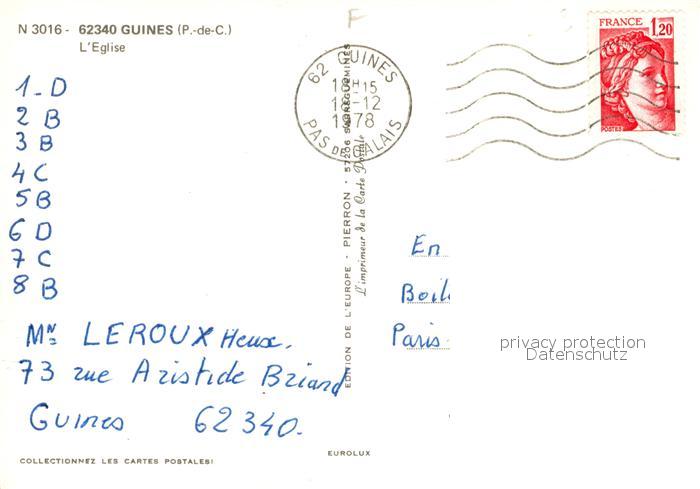 N 3016 - 62340 GUINES (P.-de-C.)
L'Eglise
1-D
2 B
3 B
4 C
5 B
6 D
7 C
8 B
LEROUX
73 rue Aristide Briand
Guines 62340.
COLLECTIONNEZ LES CARTES POSTALES!
62 GUINES
12
1978
PAS DE CALAIS
EDITION DE L'EUROPE · PIERRON · 57206 SARREGUEMINES
L'imprimeur de la Carte Postale
EUROLUX
FRANCE 1,20
POSTES
En
Paris
privacy protection
Datenschutz